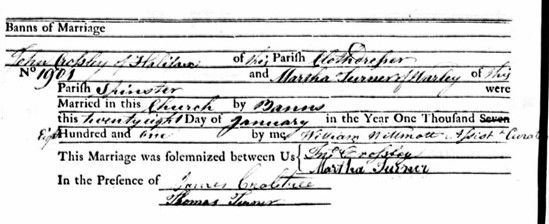 Banns of Marriage
John Crossley of Halifax of this Parish Clothdresser
No 1901 and Martha Turner of Warley of this
Parish Spinster were
Married in this Church by Banns
this twenty eight Day of January in the Year One Thousand Seven
Eight Hundred and one by me William Willmott Assist Curate
This Marriage was solemnized between Us { Jno Crossley
Martha Turner
In the Presence of James Crabtree
Thomas Turner